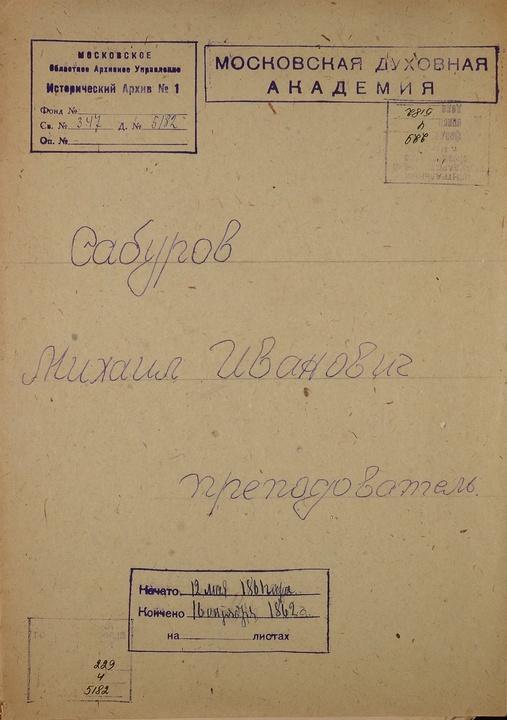 МОСКОВСКОЕ
Областное Архивное Управление
Исторический Архив № 1
Фонд №
Св. № 347 Д. № 5182
Оп. №
МОСКОВСКАЯ ДУХОВНАЯ
АКАДЕМИЯ
5182
4
229
Сабуров
Михаил Иванович
преподователь.
Начато 12 мая 1861 года
Кончено 16 октября 1862 г.
на листах
229
4
5182